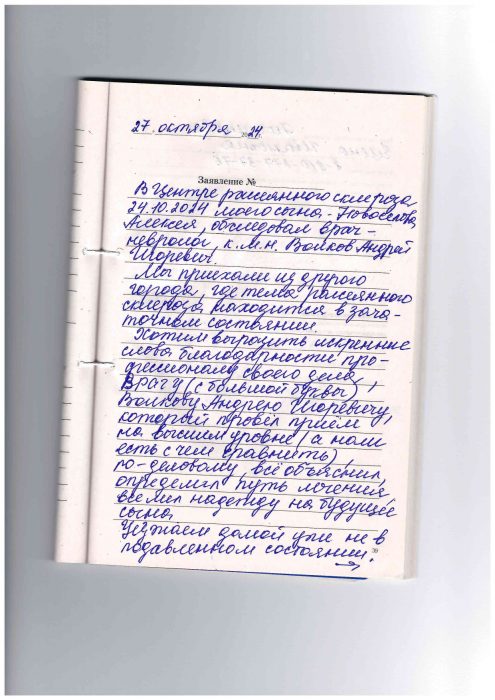 27 октября 24
Заявление №
В Центре рассеянного склероза
24.10.2024 моего сына - Новоселова
Алексея, обследовал врач-
невролог, к.м.н. Волков Андрей
Игоревич.
Мы приехали из другого
города, где тема рассеянного
склероза находится в зача-
точном состоянии.
Хотим выразить искренние
слова благодарности про-
фессионалу своего дела,
Врачу (с большой буквы),
Волкову Андрею Игоревичу,
который провёл приём
на высшем уровне (а нам
есть с чем сравнить),
по-деловому, всё объяснил,
определил путь лечения,
вселил надежду на будущее
сына.
Уезжаем домой уже не в
подавленном состоянии.
39